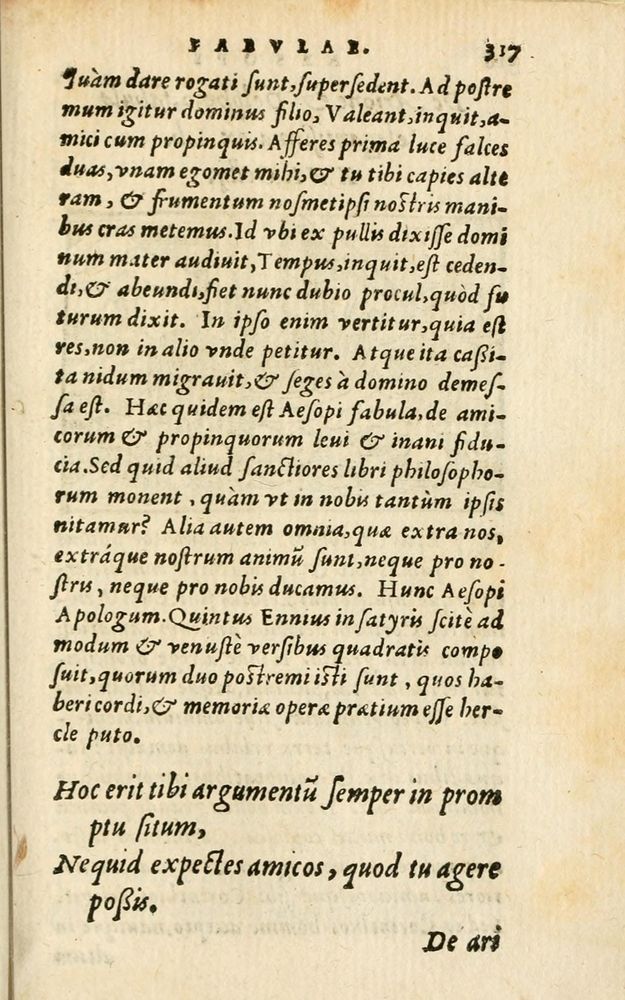 FABVLAE. 317
Quàm dare rogati ſunt, ſuperſedent. Ad poſtre
mum igitur dominus filio, Valeant, inquit, a-
mici cum propinquis. Afferes prima luce falces
duas, vnam egomet mihi, & tu tibi capies alte
ram, & frumentum noſmetipſi noſtris mani-
bus cras metemus. Id vbi ex pullis dixiſſe domi
num mater audiuit, Tempus, inquit, eſt ceden-
di, & abeundi, fiet nunc dubio procul, quòd fu
turum dixit. In ipſo enim vertitur, quia eſt
res, non in alio vnde petitur. Atque ita caßi-
ta nidum migrauit, & ſeges à domino demeſ-
ſa eſt. Hæc quidem eſt Aeſopi fabula, de ami-
corum & propinquorum leui & inani fidu-
cia. Sed quid aliud ſanctiores libri philoſopho-
rum monent, quàm vt in nobis tantùm ipſis
nitamur? Alia autem omnia, quæ extra nos,
extráque noſtrum animũ ſunt, neque pro no-
ſtris, neque pro nobis ducamus. Hunc Aeſopi
Apologum. Quintus Ennius in ſatyris ſcitè ad
modum & venuſtè verſibus quadratis compo
ſuit, quorum duo poſtremi iſti ſunt, quos ha-
beri cordi, & memoriæ operæ prætium eſſe her-
cle puto.
Hoc erit tibi argumentũ ſemper in prom
ptu ſitum,
Nequid expectes amicos, quod tu agere
poßis.
De ari